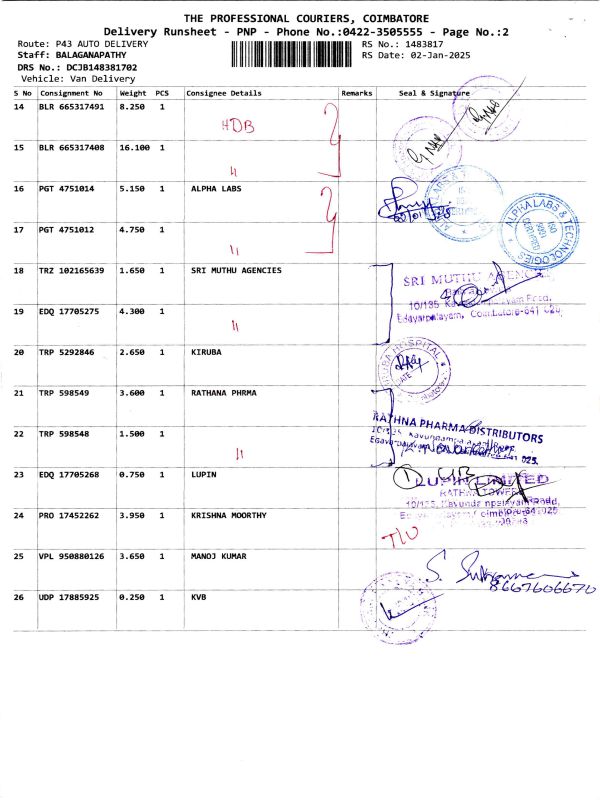 THE PROFESSIONAL COURIERS, COIMBATORE
Delivery Runsheet - PNP - Phone No.:0422-3505555 - Page No.:2
Route: P43 AUTO DELIVERY
RS No.: 1483817
Staff: BALAGANAPATHY
RS Date: 02-Jan-2025
DRS No.: DCJB148381702
Vehicle: Van Delivery
S No Consignment No Weight PCS Consignee Details Remarks Seal & Signature
14 BLR 665317491 8.250 1 HDB
15 BLR 665317408 16.100 1 "
16 PGT 4751014 5.150 1 ALPHA LABS
ALPHA LABS & TECHNOLOGIES
ISO 9001 CERTIFIED
17 PGT 4751012 4.750 1 "
18 TRZ 102165639 1.650 1 SRI MUTHU AGENCIES
SRI MUTHU AGENCIES
19 EDQ 17705275 4.300 1 "
Edayarpalayam, Coimbatore-641 025
20 TRP 5292846 2.650 1 KIRUBA
KIRUBA HOSPITAL
DATE
21 TRP 598549 3.600 1 RATHANA PHRMA
RATHNA PHARMA DISTRIBUTORS
22 TRP 598548 1.500 1 "
23 EDQ 17705268 0.750 1 LUPIN
LUPIN LIMITED
RATHNA TOWER
24 PRO 17452262 3.950 1 KRISHNA MOORTHY
25 VPL 950880126 3.650 1 MANOJ KUMAR
8667606670
26 UDP 17885925 0.250 1 KVB